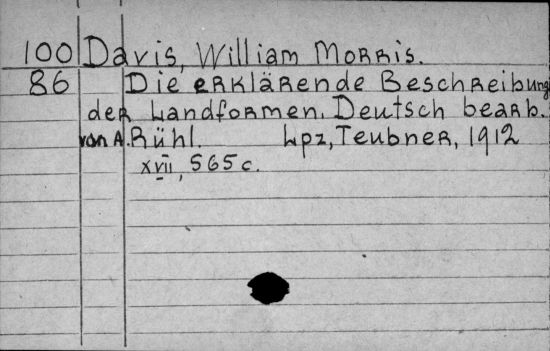 100 Davis, William Morris.
86 Die erklärende Beschreibung
der Landformen. Deutsch bearb.
von A. Rühl. Lpz, Teubner, 1912
xvii, 565 c.